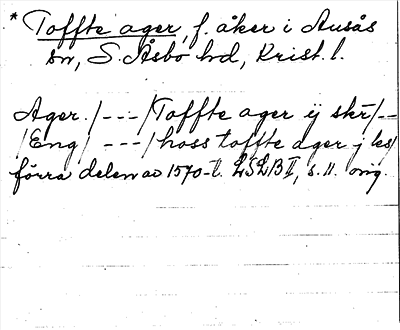 * Toffte ager, f. åker i Ausås
sn, S. Åsbo hd, Krist. l.
Ager. /---/ Toffte ager ij skr̄ /--
/Eng/ ---/ hoss toffte ager j les/
förra delen av 1570-t. LSLB II, s. 11. orig.